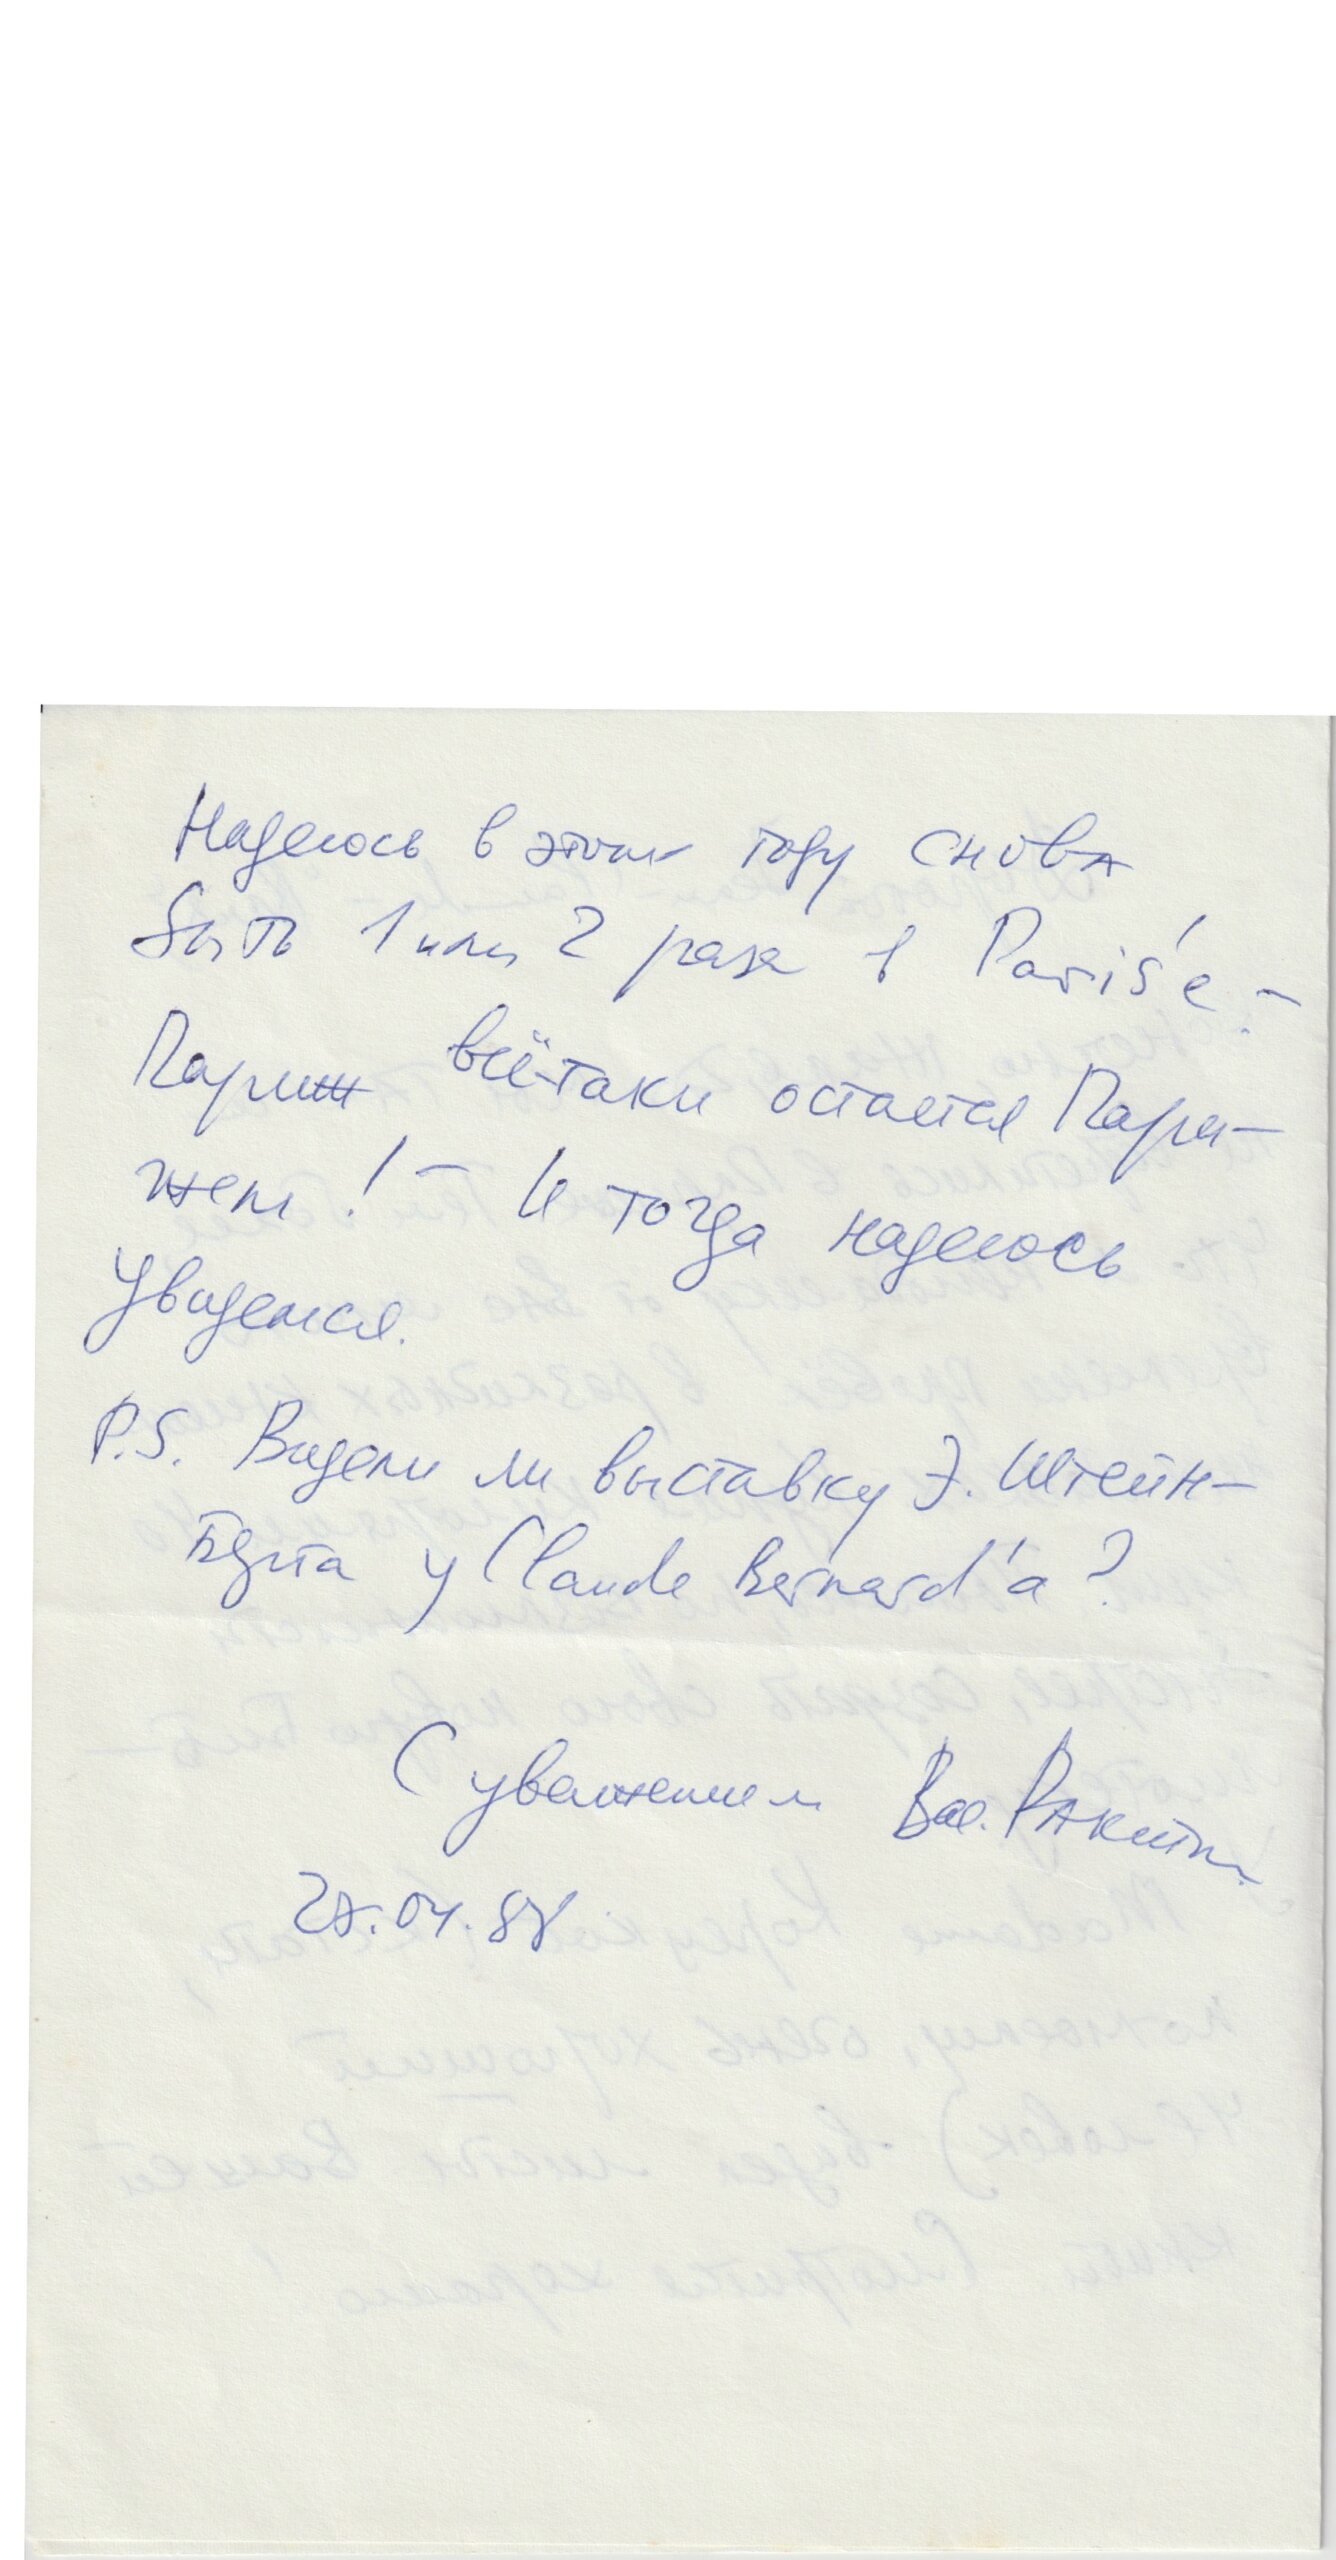 Надеюсь в этом году снова
быть 1 или 2 раза в Paris'е –
Париж всё-таки остается Пари-
жем! – И тогда надеюсь
увидемся.
P.S. Видели ли выставку Э. Штейн-
берга у Claude Bernard'а?
С уважением Вас. Ракитин
27.04.88